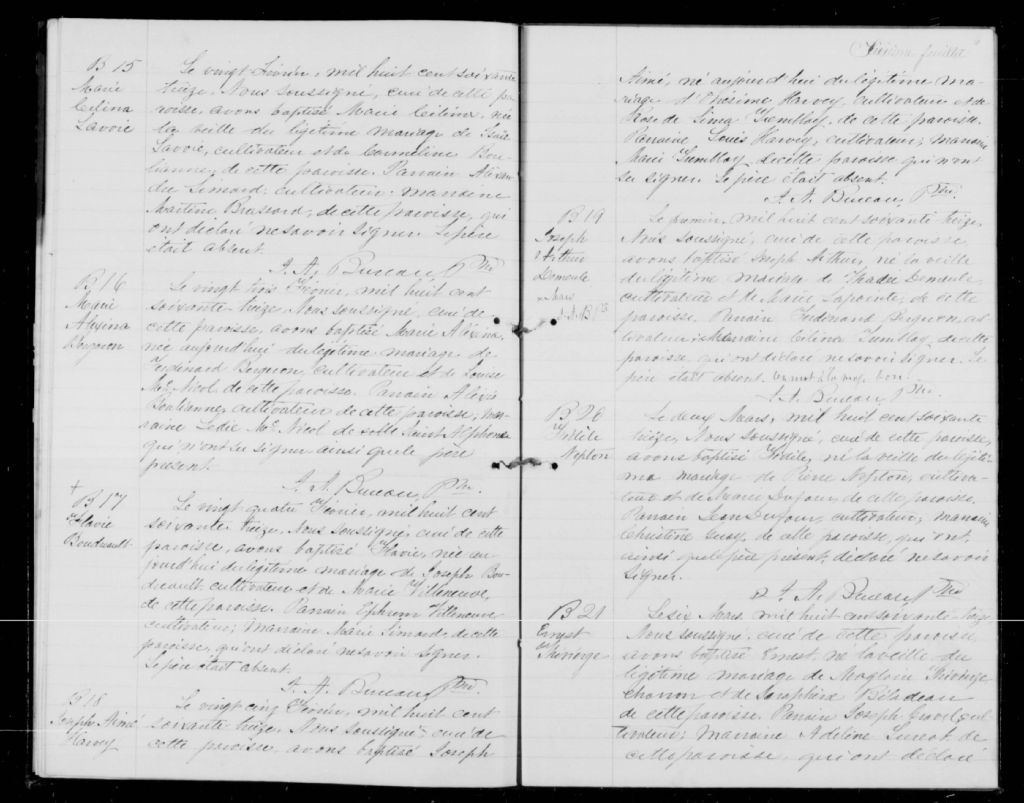 B 15
Marie
Celina
Lavoie
Le vingt Février, mil huit cent soixante
treize, Nous soussigné, curé de cette pa-
roisse, avons baptisé Marie Célina, née
la veille du légitime mariage de
Lavoie, cultivateur et de Carmeline Bou-
lianne, de cette paroisse. Parrain Alexan-
dre Simard, cultivateur; marraine
Martine Brassard, de cette paroisse, qui
ont déclaré ne savoir signer. Le père
était absent.
J. A. Bureau, Ptre
B 16
Marie
Alexina
Bergeron
Le vingt trois Février, mil huit cent
soixante-treize, Nous soussigné, curé de
cette paroisse, avons baptisé Marie Alexina,
née aujourd'hui du légitime mariage de
Ferdinand Bergeron, cultivateur et de Louise
Mc Nicol de cette paroisse. Parrain Alexis
Boulianne, cultivateur de cette paroisse, mar-
raine Mc Nicol de Saint Alphonse
qui n'ont su signer ainsi que le père
présent.
J. A. Bureau, Ptre.
+
B 17
Flavie
Boudreault
Le vingt quatre Février, mil huit cent
soixante treize, Nous soussigné, curé de cette
paroisse, avons baptisé Flavie, née au-
jourd'hui du légitime mariage de Joseph Bou-
dreault cultivateur et de Marie Villeneuve,
de cette paroisse. Parrain Ephrem Villeneuve
cultivateur; Marraine Marie Simard de cette
paroisse, qui ont déclaré ne savoir signer.
Le père était absent.
J. A. Bureau, Ptre.
B 18
Joseph Aimé
Harvey
Le vingt cinq Février, mil huit cent
soixante treize, Nous soussigné, curé de
cette paroisse, avons baptisé Joseph
feuillet
Aimé, né aujourd'hui du légitime ma-
riage d'Onésime Harvey, cultivateur et de
Rose de Lima Tremblay, de cette paroisse.
Parrain, Louis Harvey, cultivateur; marraine
Marie Tremblay, de cette paroisse qui n'ont
su signer. Le père était absent.
J. A. Bureau, Ptre.
B 19
Joseph
Arthur
Demeule
Mars
J. A. B. Ptre
Le mil huit cent soixante treize,
Nous soussigné, curé de cette paroisse
avons baptisé Joseph Arthur, né la veille
du légitime mariage de Demeule,
cultivateur et de Marie Lapointe, de cette
paroisse. Parrain Ferdinand Bergeron, cul-
tivateur; Marraine Célina Tremblay, de cette
paroisse, qui ont déclaré ne savoir signer. Le
père était absent. bon.
J. A. Bureau Ptre
B 20
Fidèle
Nepton
Le deux Mars, mil huit cent soixante
treize, Nous soussigné, curé de cette paroisse,
avons baptisé Fidèle, né la veille du légiti-
me mariage de Pierre Nepton, cultiva-
teur et de Marie Dufour, de cette paroisse.
Parrain Léon Dufour, cultivateur; marraine
Christine de cette paroisse, qui ont,
ainsi que le père présent, déclaré ne savoir
signer.
J. A. Bureau, Ptre
B 21
Ernest
Thivierge
Le six Mars, mil huit cent soixante treize
Nous soussigné, curé de cette paroisse,
avons baptisé Ernest, né la veille du
légitime mariage de Magloire Thivierge
charron et de Séraphine Bilodeau
de cette paroisse. Parrain Joseph Gravel, cul-
tivateur; Marraine Adeline de
cette paroisse, qui ont déclaré